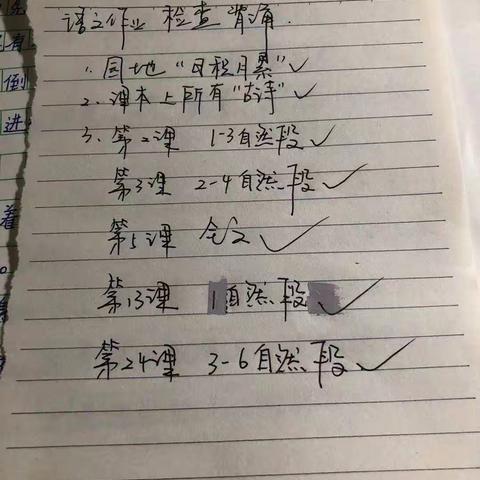 语文作业 检查背诵.
1. 园地“日积月累”✓
2. 课本上所有“古诗”✓
3. 第2课 1-3自然段✓
第3课 2-4自然段✓
第5课 全文✓
第13课 1自然段✓
第24课 3-6自然段✓
有
倒
进
着
。